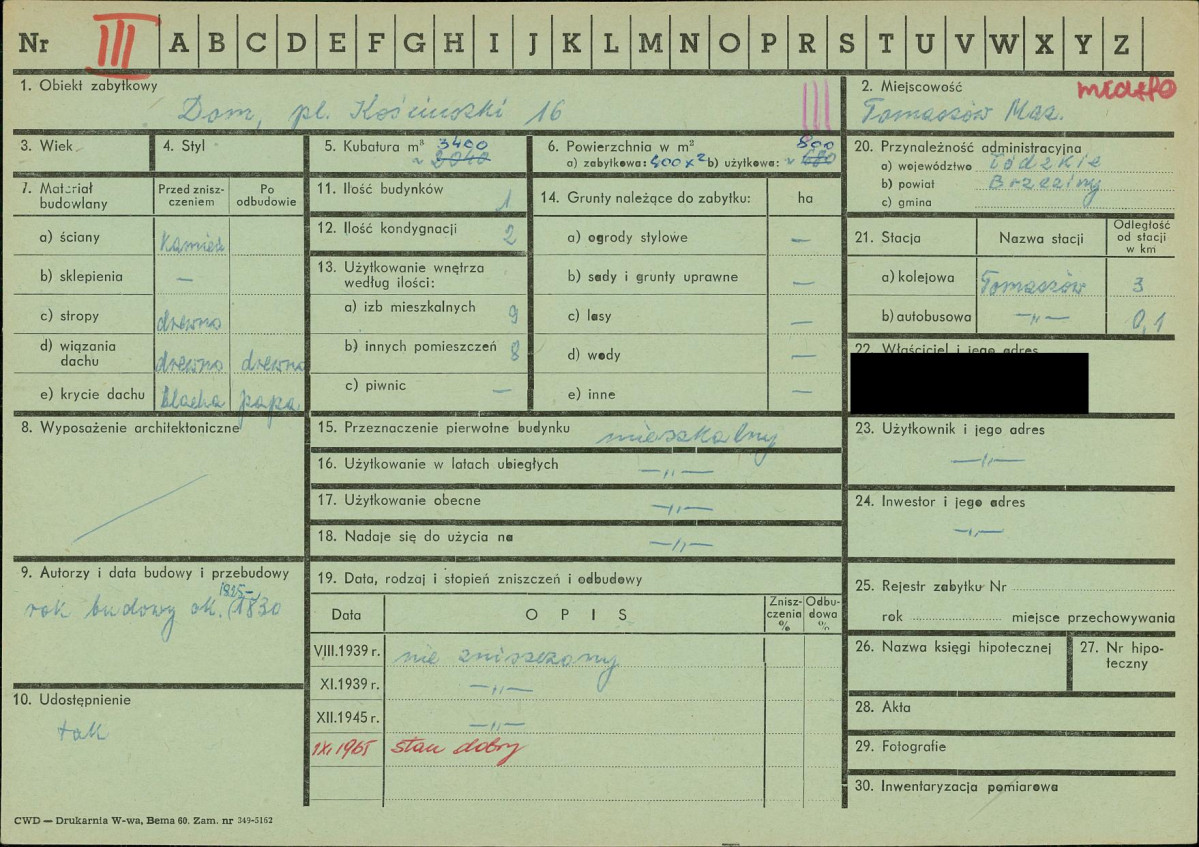 Nr III A B C D E F G H I J K L M N O P R S T U V W X Y Z
1. Obiekt zabytkowy
Dom, pl. Kościuszki 16 III
2. Miejscowość miasto
Tomaszów Maz.
3. Wiek
4. Styl
5. Kubatura m³ 3400
~ 3040
6. Powierzchnia w m² 800
a) zabytkowa: 400x2 b) użytkowa: ~ 680
20. Przynależność administracyjna
a) województwo Łódzkie
b) powiat Brzeziny
c) gmina
7. Materiał budowlany
Przed zniszczeniem
Po odbudowie
a) ściany kamień
b) sklepienia —
c) stropy drewno
d) wiązania dachu drewno drewno
e) krycie dachu blacha papa
11. Ilość budynków 1
12. Ilość kondygnacji 2
13. Użytkowanie wnętrza
według ilości:
a) izb mieszkalnych 9
b) innych pomieszczeń 8
c) piwnic —
14. Grunty należące do zabytku: ha
a) ogrody stylowe —
b) sady i grunty uprawne —
c) lasy —
d) wody —
e) inne —
21. Stacja
Nazwa stacji
Odległość
od stacji
w km
a) kolejowa Tomaszów 3
b) autobusowa —„— 0,1
22. Właściciel i jego adres
8. Wyposażenie architektoniczne
15. Przeznaczenie pierwotne budynku mieszkalny
16. Użytkowanie w latach ubiegłych —„—
17. Użytkowanie obecne —„—
18. Nadaje się do użycia na —„—
23. Użytkownik i jego adres
—„—
24. Inwestor i jego adres
—„—
9. Autorzy i data budowy i przebudowy
1825–
rok budowy ok. (1830
10. Udostępnienie
tak
19. Data, rodzaj i stopień zniszczeń i odbudowy
Data
O P I S
Zniszczenia %
Odbudowa %
VIII.1939 r. nie zniszczony
XI.1939 r. —„—
XII.1945 r. —„—
1XI 1965 stan dobry
25. Rejestr zabytku Nr
rok miejsce przechowywania
26. Nazwa księgi hipotecznej
27. Nr hipoteczny
28. Akta
29. Fotografie
30. Inwentaryzacja pomiarowa
CWD — Drukarnia W-wa, Bema 60. Zam. nr 349-5162